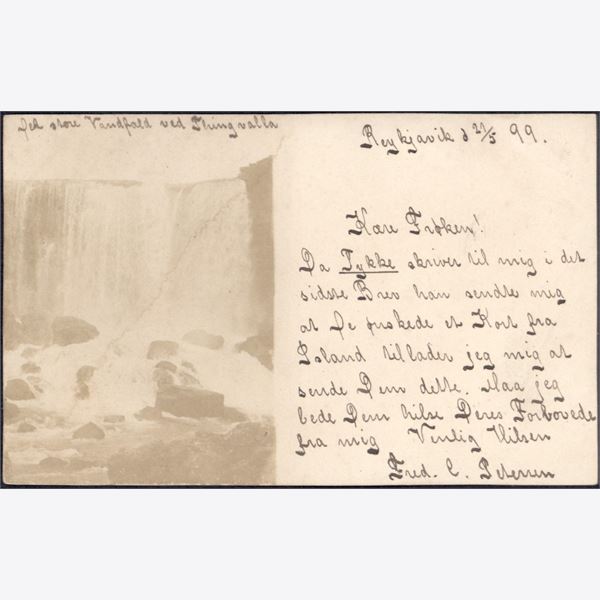 Det store Vandfald ved Thingvalla
Reykjavik d 27/5 99.
Kære Frøken!
Da Tykke skriver til mig i det
sidste Brev han sendte mig
at De ønskede et Kort fra
Island tillader jeg mig at
sende Dem dette. Maa jeg
bede Dem hilse Deres Forlovede
fra mig Venlig Hilsen
Fred. C. Petersen